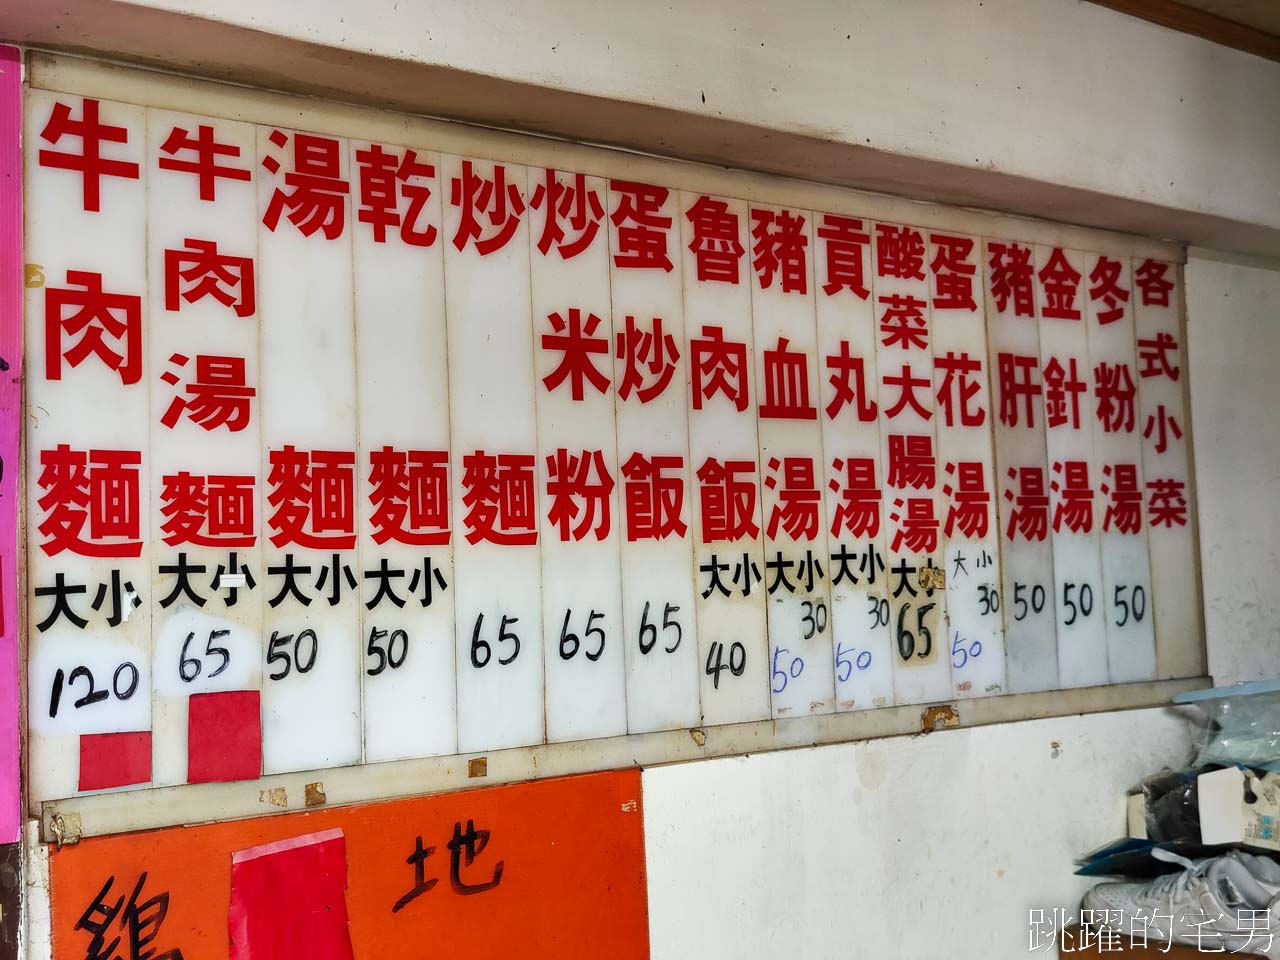 牛肉麵 大小 120
牛肉湯麵 大小 65
湯麵 大小 50
乾麵 大小 50
炒麵 65
炒米粉 65
蛋炒飯 65
魯肉飯 大小 40
豬血湯 大小 30 50
貢丸湯 大小 30 50
酸菜大腸湯 大小 65
蛋花湯 大小 30 50
豬肝湯 50
金針湯 50
冬粉湯 50
各式小菜
土地
雞
跳躍的宅男